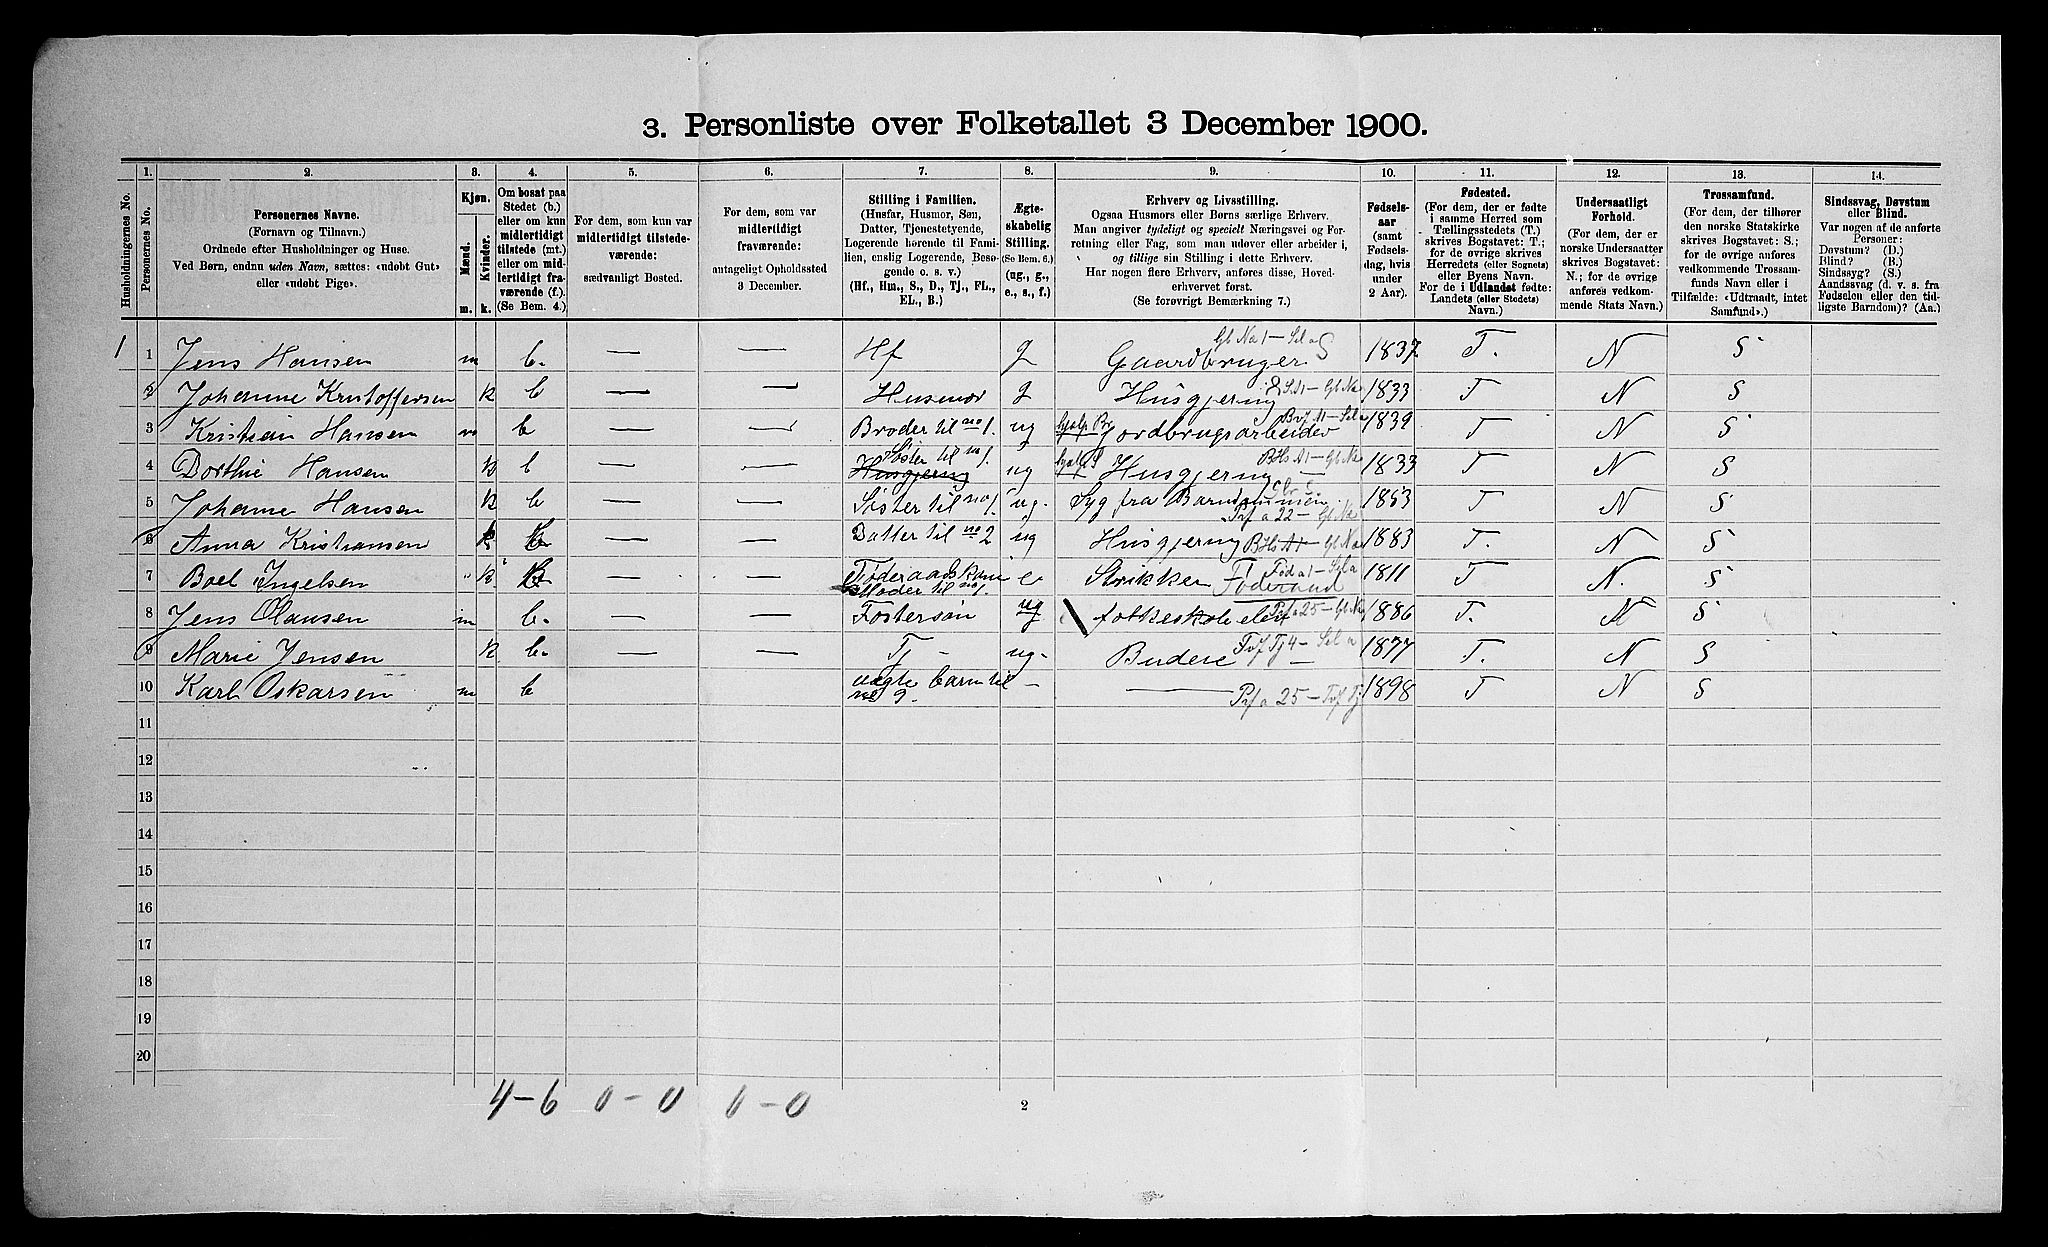 3. Personliste over Folketallet 3 December 1900.
Husholdningernes No.
1. Personernes No.
2. Personernes Navne.
(Fornavn og Tilnavn.)
Ordnede efter Husholdninger og Huse.
Ved Børn, endnu uden Navn, sættes: «udøbt Gut»
eller «udøbt Pige».
3. Kjøn.
Mænd. Kvinder.
m. k.
4. Om bosat paa
Stedet (b.)
eller om kun
midlertidigt
tilstede (mt.)
eller om mid-
lertidigt fra-
værende (f.).
(Se Bem. 4.)
5. For dem, som kun var
midlertidigt tilstede-
værende:
sædvanligt Bosted.
6. For dem, som var
midlertidigt
fraværende:
antageligt Opholdssted
3 December.
7. Stilling i Familien.
(Husfar, Husmor, Søn,
Datter, Tjenestetyende,
Logerende hørende til Fami-
lien, enslig Logerende, Besø-
gende o. s. v.)
(Hf., Hm., S., D., Tj., FL.,
EL., B.)
8. Ægte-
skabelig
Stilling.
(Se Bem. 6.)
(ug., g.,
e., s., f.)
9. Erhverv og Livsstilling.
Ogsaa Husmors eller Børns særlige Erhverv.
Man angiver tydeligt og specielt Næringsvei og For-
retning eller Fag, som man udøver eller arbeider i,
og tillige sin Stilling i dette Erhverv.
Har nogen flere Erhverv, anføres disse, Hoved-
erhvervet først.
(Se forøvrigt Bemærkning 7.)
10. Fødsels-
aar
(samt
Fødsels-
dag, hvis
under
2 Aar).
11. Fødested.
(For dem, der er fødte
i samme Herred som
Tællingsstedets (T.)
skrives Bogstavet: T.;
for de øvrige skrives
Herredets (eller Sognets)
eller Byens Navn.
For de i Udlandet fødte:
Landets (eller Stedets)
Navn.)
12. Undersaatligt
Forhold.
(For dem, der er
norske Undersaatter
skrives Bogstavet:
N.; for de øvrige
anføres vedkom-
mende Stats Navn.)
13. Trossamfund.
(For dem, der tilhører
den norske Statskirke
skrives Bogstavet: S.;
for de øvrige anføres
vedkommende Trossam-
funds Navn eller i
Tilfælde: «Udtraadt, intet
Samfund».)
14. Sindssvag, Døvstum
eller Blind.
Var nogen af de anførte
Personer:
Døvstum? (D.)
Blind? (B.)
Sindssyg? (S.)
Aandssvag (d. v. s. fra
Fødselen eller den tid-
ligste Barndom)? (Aa.)
1 1 Jens Hansen m b. — — Hf g Gaardbruger 1837 T. N S
2 Johanne Kristoffersen k b — — Husmor g Husgjerning 1833 T N S
3 Kristian Hansen m b — — Broder til no 1. ug Jordbrugsarbeider 1839 T N S
4 Dorthie Hansen k b — — Søster til no 1. Husgjerning ug Husgjerning 1833 T N S
5 Johanne Hansen k b — — Søster til no 1. ug. Syg fra Barndommen. 1853 T N S
6 Anna Kristiansen k b — — Datter til no 2 ug Husgjerning 1883 T. N S
7 Boel Ingelsen k b — — Føderaadskone Moder til no 1. e. Strikker 1811 T N. S
8 Jens Olausen m b. — Fostersøn ug folkeskole elev 1886 T. N S
9 Marie Jensen k b. — — Tj ug. Budeie 1877 T. N S
10 Karl Oskarsen m b uægte barn til no 9. — — 1898 T N S
11
12
13
14
15
16
17
18
19
20
4-6 0-0 0-0
2